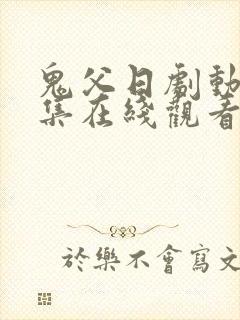 鬼父日劇動
集在綫觀看
於樂不會寫文